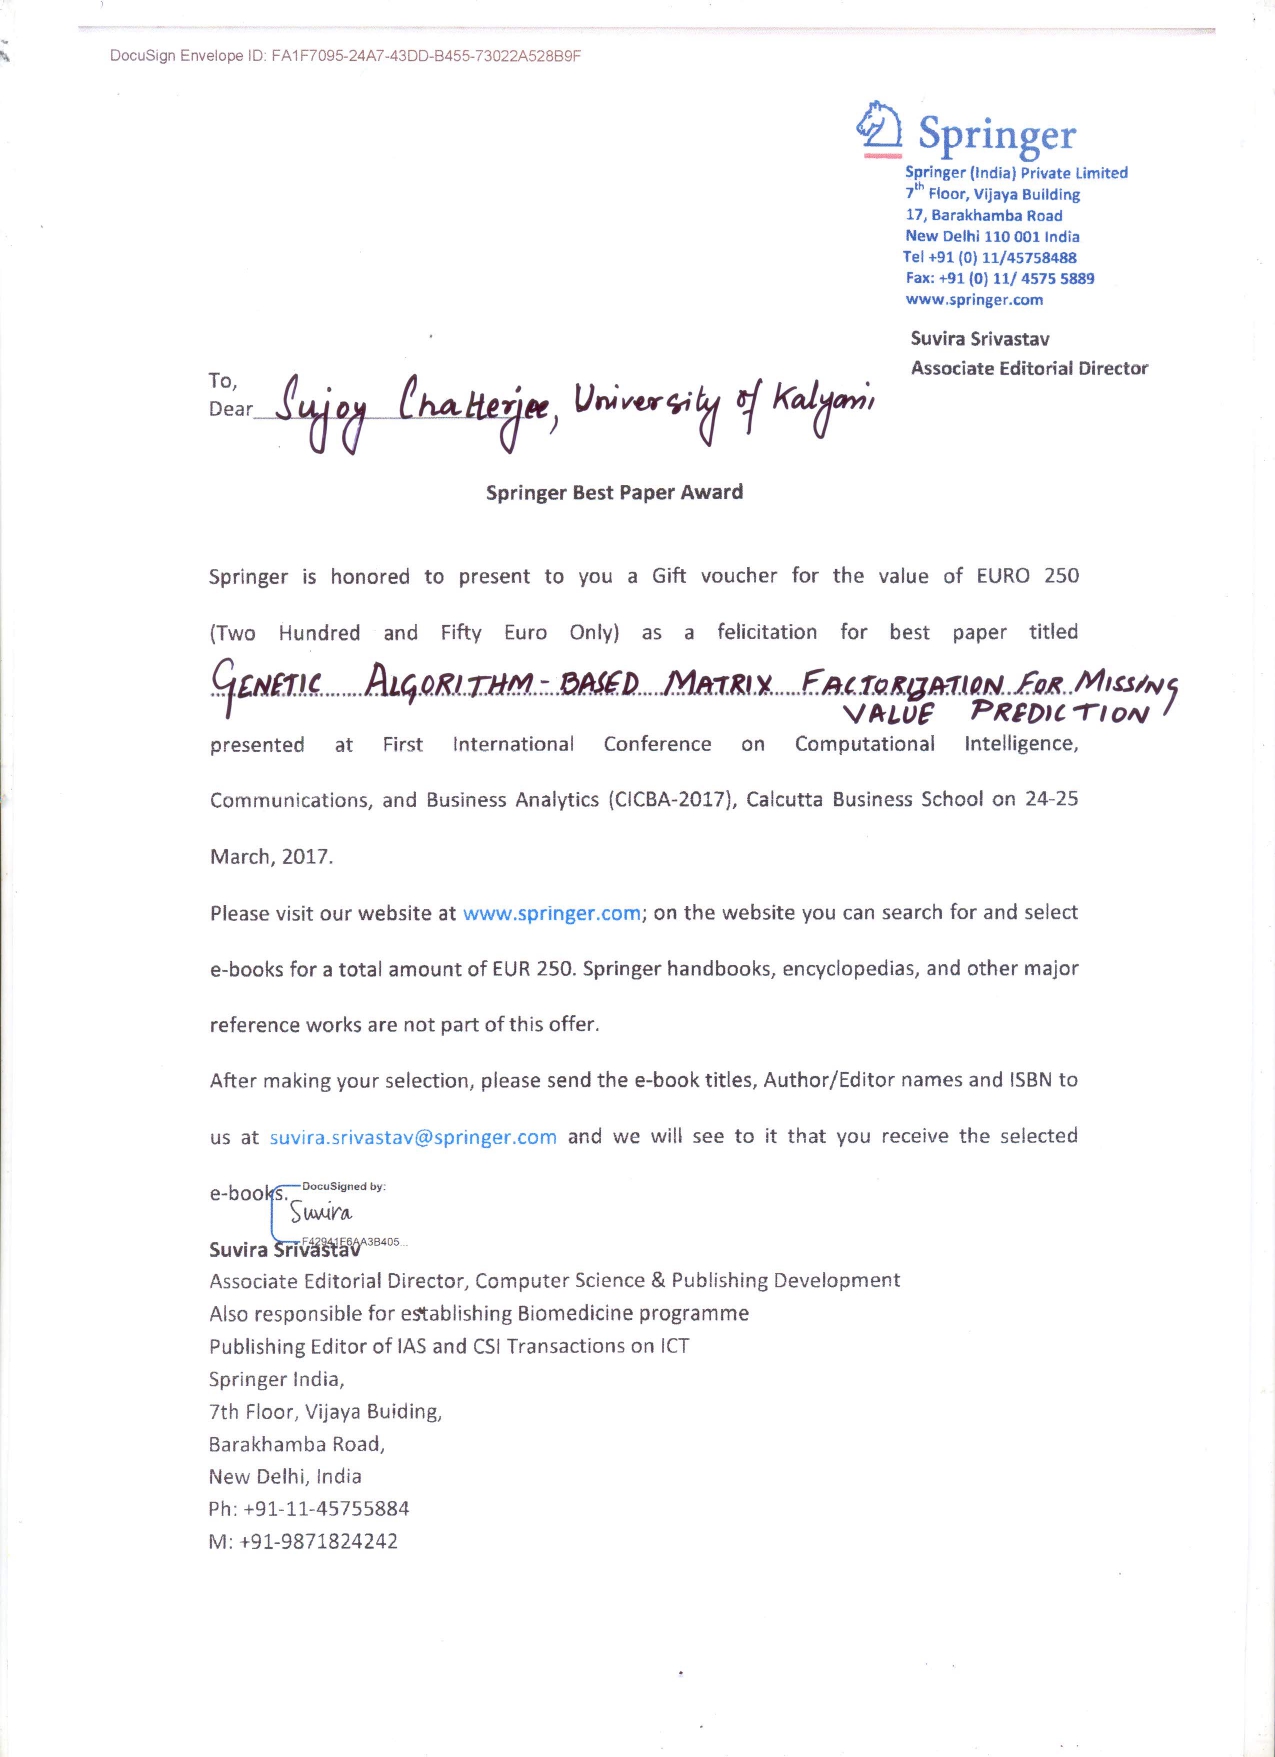 DocuSign Envelope ID: FA1F7095-24A7-43DD-B455-73022A528B9F
Springer
Springer (India) Private Limited
7th Floor, Vijaya Building
17, Barakhamba Road
New Delhi 110 001 India
Tel +91 (0) 11/45758488
Fax: +91 (0) 11/ 4575 5889
www.springer.com
Suvira Srivastav
Associate Editorial Director
To,
Dear Sujoy Chatterjee, University of Kalyani
Springer Best Paper Award
Springer is honored to present to you a Gift voucher for the value of EURO 250
(Two Hundred and Fifty Euro Only) as a felicitation for best paper titled
GENETIC ALGORITHM-BASED MATRIX FACTORIZATION FOR MISSING
VALUE PREDICTION
presented at First International Conference on Computational Intelligence,
Communications, and Business Analytics (CICBA-2017), Calcutta Business School on 24-25
March, 2017.
Please visit our website at www.springer.com; on the website you can search for and select
e-books for a total amount of EUR 250. Springer handbooks, encyclopedias, and other major
reference works are not part of this offer.
After making your selection, please send the e-book titles, Author/Editor names and ISBN to
us at suvira.srivastav@springer.com and we will see to it that you receive the selected
e-books.
DocuSigned by:
Suvira
F42941E6AA3B405...
Suvira Srivastav
Associate Editorial Director, Computer Science & Publishing Development
Also responsible for establishing Biomedicine programme
Publishing Editor of IAS and CSI Transactions on ICT
Springer India,
7th Floor, Vijaya Buiding,
Barakhamba Road,
New Delhi, India
Ph: +91-11-45755884
M: +91-9871824242